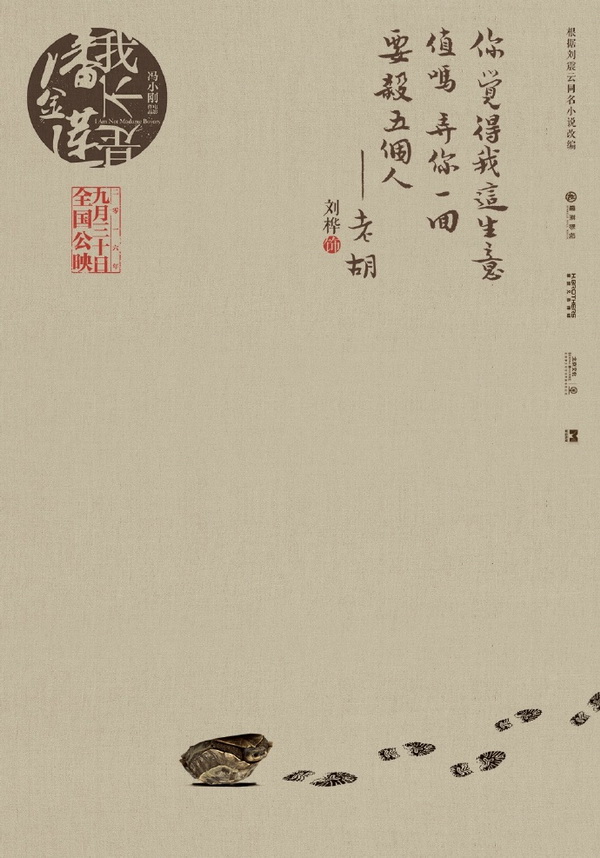 我不是
潘金莲
冯小刚
I Am Not Madame Bovary
二零一六年
九月三十日
全国公映
你覺得我這生意
值嗎 弄你一回
要殺五個人
——老胡
刘桦 饰
根据刘震云同名小说改编
H.BROTHERS